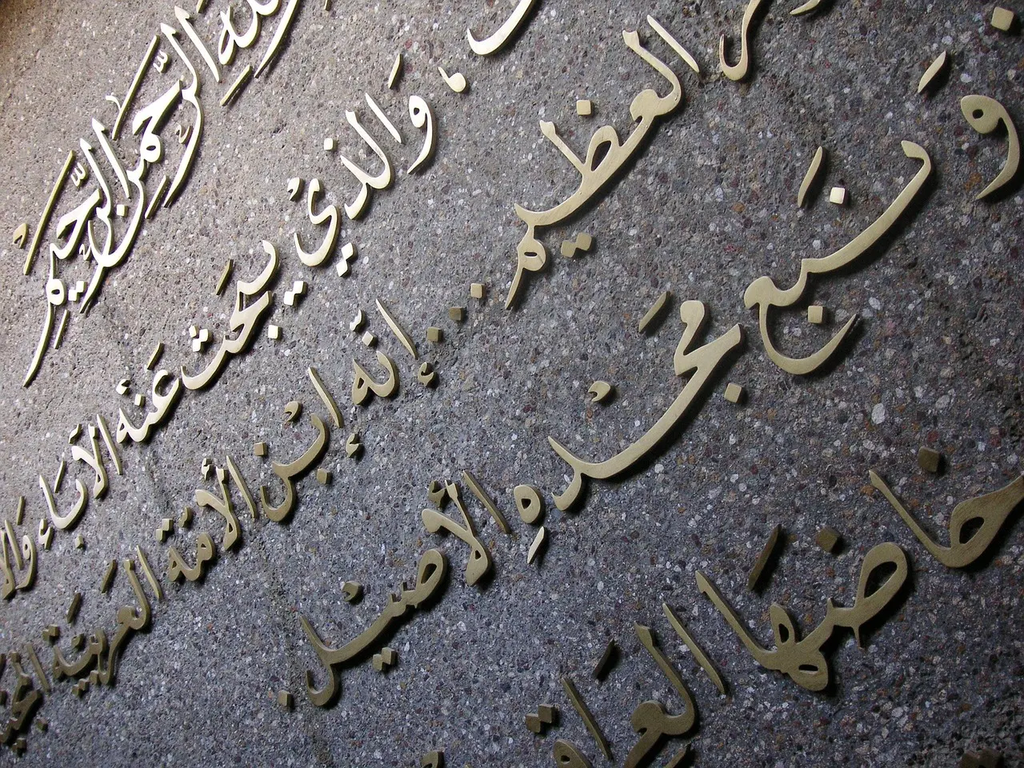 الله الرَّحمٰنِ الرَّحيمِ
، وَالذيْ يبحَث عَنْه الآبَاء
العظيم ... إنه إبْن الأمَّة العَربيَّة
وَ نبَع مَجْدهِ الأصيْل .
حَاضنهَا